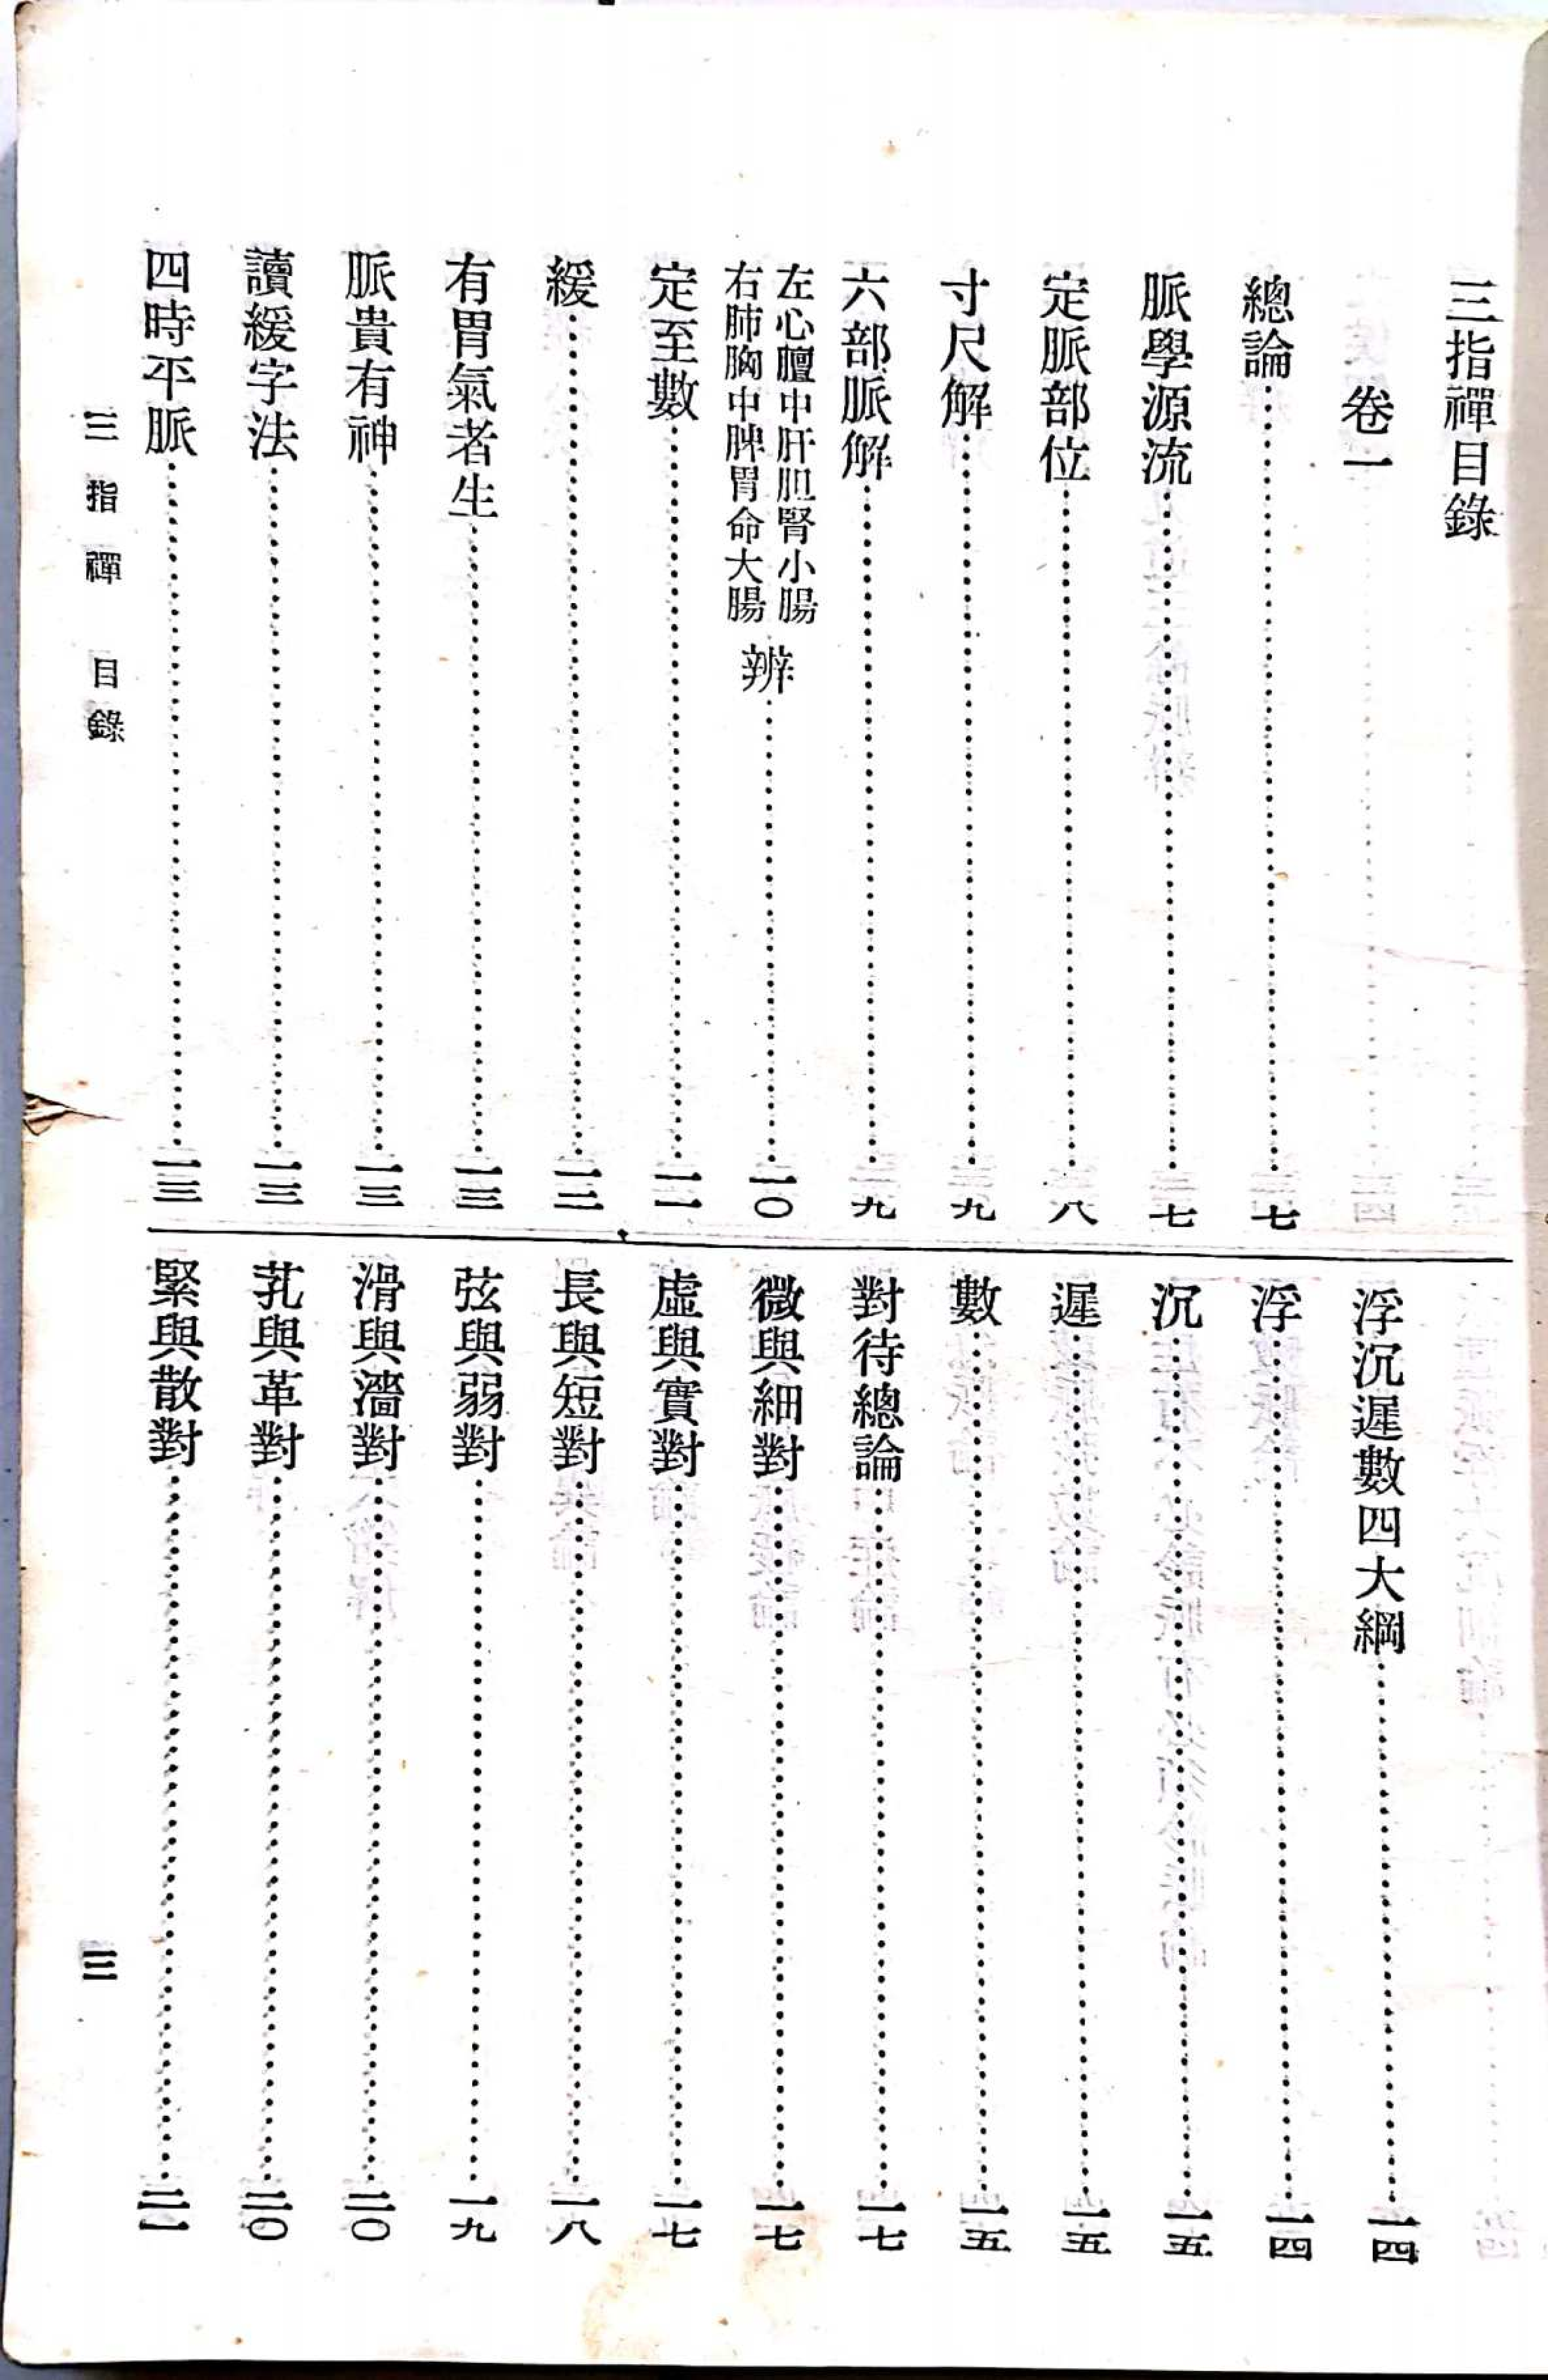 三指禪目錄
卷一
總論……七
脈學源流……七
定脈部位……八
寸尺解……九
六部脈解……九
左心膻中肝胆腎小腸
右肺胸中脾胃命大腸
辨……一〇
定至數……一一
緩……一二
有胃氣者生……一三
脈貴有神……一三
讀緩字法……一三
四時平脈……一三
浮沉遲數四大綱……一四
浮……一四
沉……一五
遲……一五
數……一五
對待總論……一七
微與細對……一七
虛與實對……一七
長與短對……一八
弦與弱對……一九
滑與濇對……二〇
芤與革對……二〇
緊與散對……二一
三指禪 目錄
三